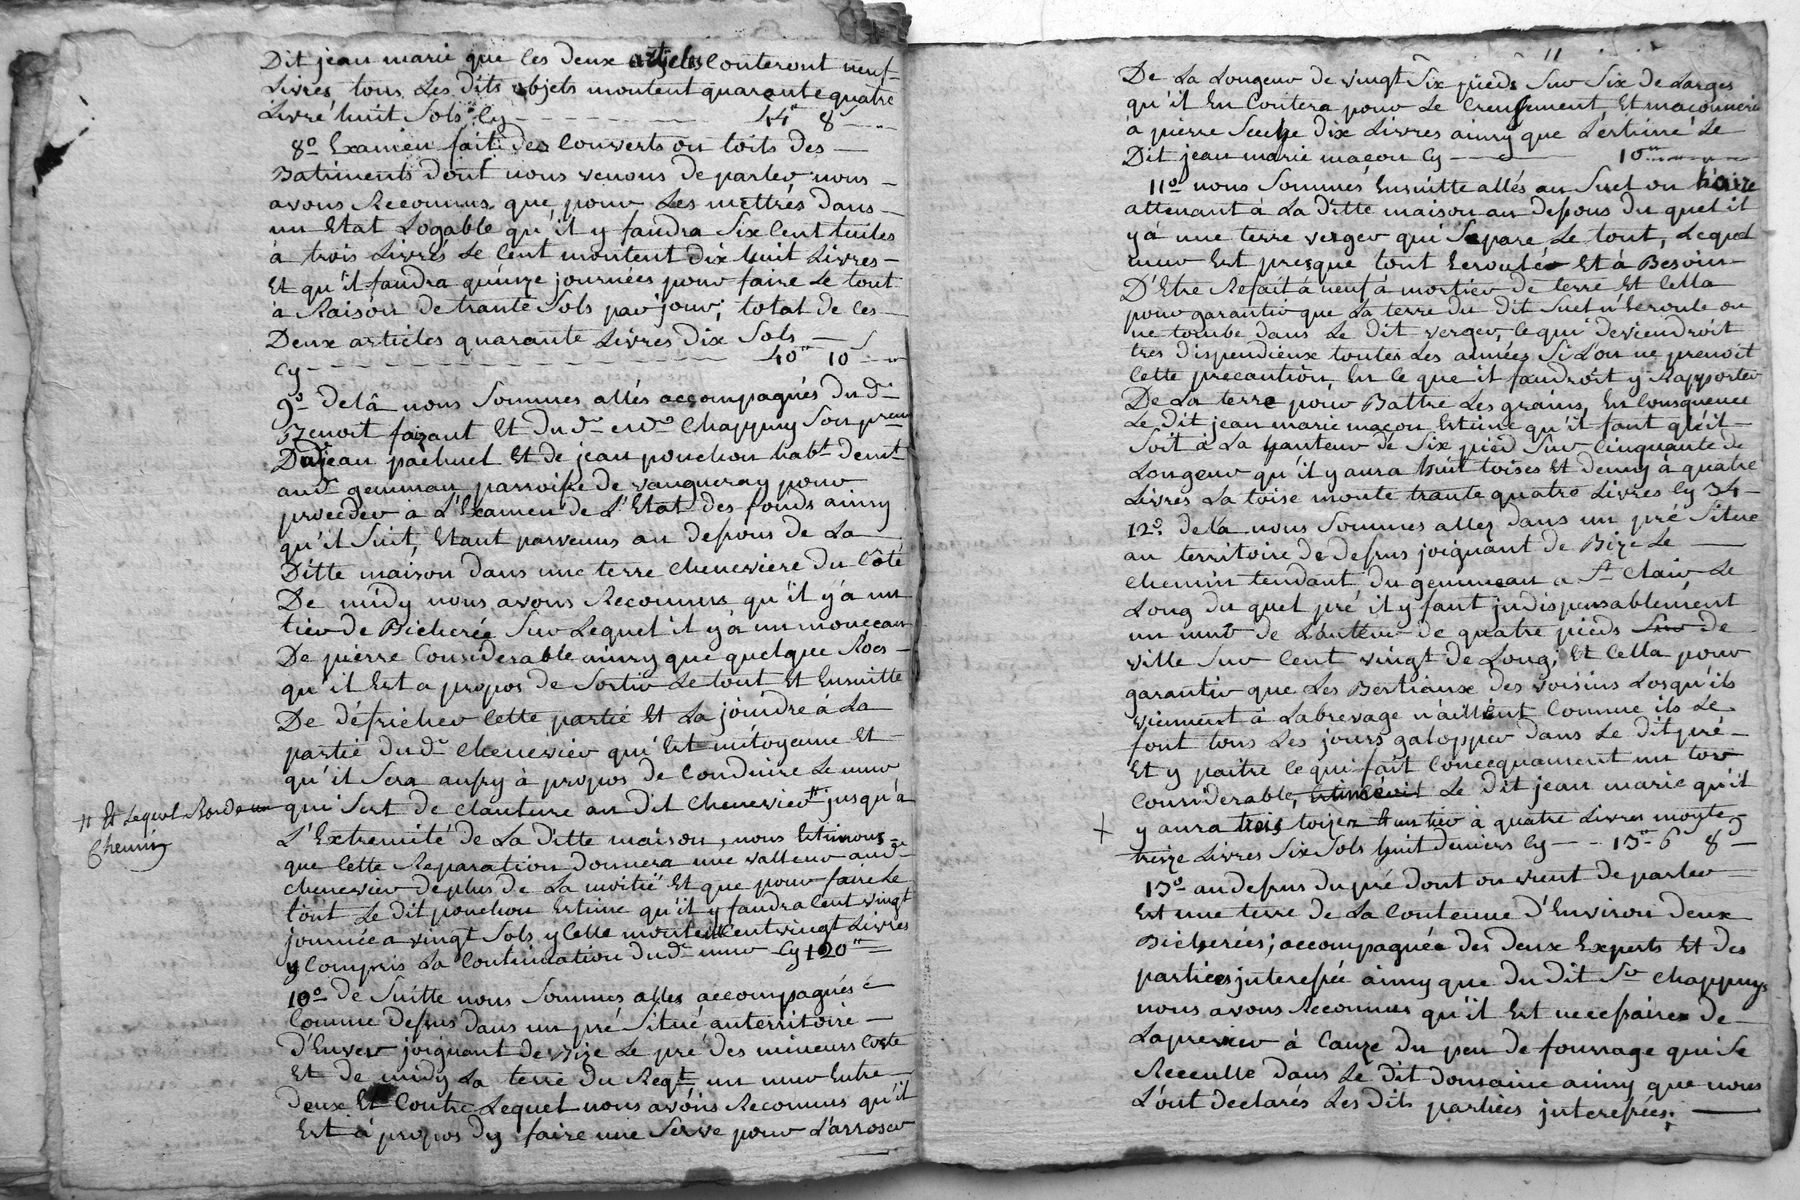 Dit jean marie que les deux articles Conteront neuf
Livres tous Les Dits objets montent quarante quatre
Livre huit Sols Cy - - - - - - 44" 8 S - -
8o Examen fait des Couverts ou toits des —
Batiments dont nous venons de parler nous —
avons Reconnus que pour Les mettres dans —
un Etat Logable qu'il y faudra Six Cent tuiles
à trois Livres Le Cent montent dix huit Livres —
Et qu'il faudra quinze journées pour faire Le tout
à Raison de trante Sols par jour; total de Ces —
Deux articles quarante Livres Dix Sols —
Cy - - - - - - - - - - 40" 10 S - -
9o De là nous Sommes allés accompagnés du dt
Benoit fazant Et du dt Chappuy Son
jean pachuel Et de jean ponchon habt
gemman parroisse de vaugneray pour
proceder à L'Examen de L'Etat des fonds ainsy
qu'il Suit, Etant parvenus au dessous de La
Ditte maison dans une terre cheneviere du Côté
De midy nous avons Reconnus qu'il y a un
tier de Bicherée Sur Lequel il y a un monceau
De pierre Considerable ainsy que quelque Rocs —
qu'il Est a propos de Sortir Le tout Et Ensuitte
De défricher Cette partie Et La joindre à La
partie du dt chenevier qui Est mitoyenne Et —
qu'il Sera aussy à propos de Conduire Le mur
qui Sert de Clauture au dit Chenevier # jusqu'a
# Et Lequel Borde un
Chemin
L'Extremité de La Ditte maison, nous Estimons
que Cette Reparation Donnera une valleur aud.
chenevier de plus de La moitié Et que pour faire Le
tout Le dit ponchon Estime qu'il y faudra Cent vingt
journée a vingt Sols y Celle monte Cent vingt Livres
y Compris La Continuation du dt mur Cy 120"
10o de Suitte nous Sommes alles accompagnés
Comme dessus dans un pré Situé au territoire —
d'Enver joignant de Bize Le pré des mineurs Coste
Et de midy La terre du Reqt, un mur Entre
Deux Et Contre Lequel nous avons Reconnus qu'il
Est à propos d'y faire une Serve pour L'arroser
De La Longeur de vingt Six pieds Sur Six de Larges
qu'il En Coutera pour Le Creusement, Et maconnerie
à pierre Seche dix Livres ainsy que L'estime Le
Dit jean marie macon Cy - - - 10"
11o nous Sommes Ensuitte allés au Suel ou haire
attenant à La ditte maison au dessous du quel il
y a une terre verger qui Separe Le tout, Lequel
mur Est presque tout Eeroulé Et à Besoin —
D'Etre Refait à neuf a mortier de terre Et Cella
pour garantir que La terre du dit Suel n'Eeroule ou
ne tombe dans Le dit verger, Ce qui deviendroit
tres dispendieux toutes Les années Si L'on ne prenoit
Cette precaution, En Ce que il faudroit y Rapporter
De La terre pour Battre Les grains, En Consquence
Le Dit jean marie macon Estime qu'il faut qu'il —
Soit à La hauteur de Six pied Sur Cinquante de
Longeur qu'il y aura huit toises Et demy à quatre
Livres La toise monte trante quatre Livres Cy 34 —
12o de La nous Sommes allez dans un pré Situé
au territoire de dessus joignant de Bize Le —
chemin tendant du gemmeau a St Clair, Le
Long du quel pré il y faut jndispensablement
un mur de L'auteur de quatre pieds Sur de
ville Sur Cent vingt de Long, Et Cella pour
garantir que Les Bestiaux des voisins Losqu'ils
viennent à Labrevage n'aillent Comme ils Le
font tous Les jours galopper dans Le dit pré —
Et y paitre Ce qui fait Concequament un tor
Considerable, Le dit jean marie qu'il
y aura trois toizes Et un tier à quatre Livres monte
+
treize Livres Six Sols huit deniers Cy - - 13" 6 S 8 d
13o au dessus du pré dont on vient de parler
Est une terre de La Contenue d'Environ deux
Bicherées; accompagnée des deux Experts Et des
parties jnteressée ainsy que du dit Sr chappuys
nous avons Reconnus qu'il Est necessaire de —
à Cauze du peu de fourrage qui Se
Receulle dans Le dit domaine ainsy que nous
L'ont declarés Les dits parties jnteressées; —